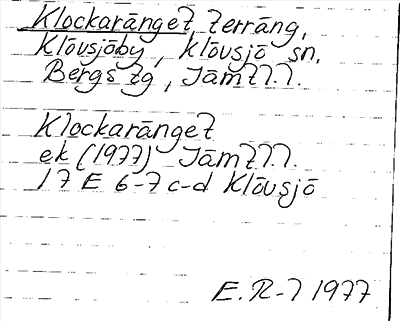 Klockaränget, terräng,
Klövsjöby, Klövsjö sn,
Bergs tg, Jämtl.
Klockaränget
ek (1977) Jämtl.
17 E 6-7 c-d Klövsjö
E. R-l 1977